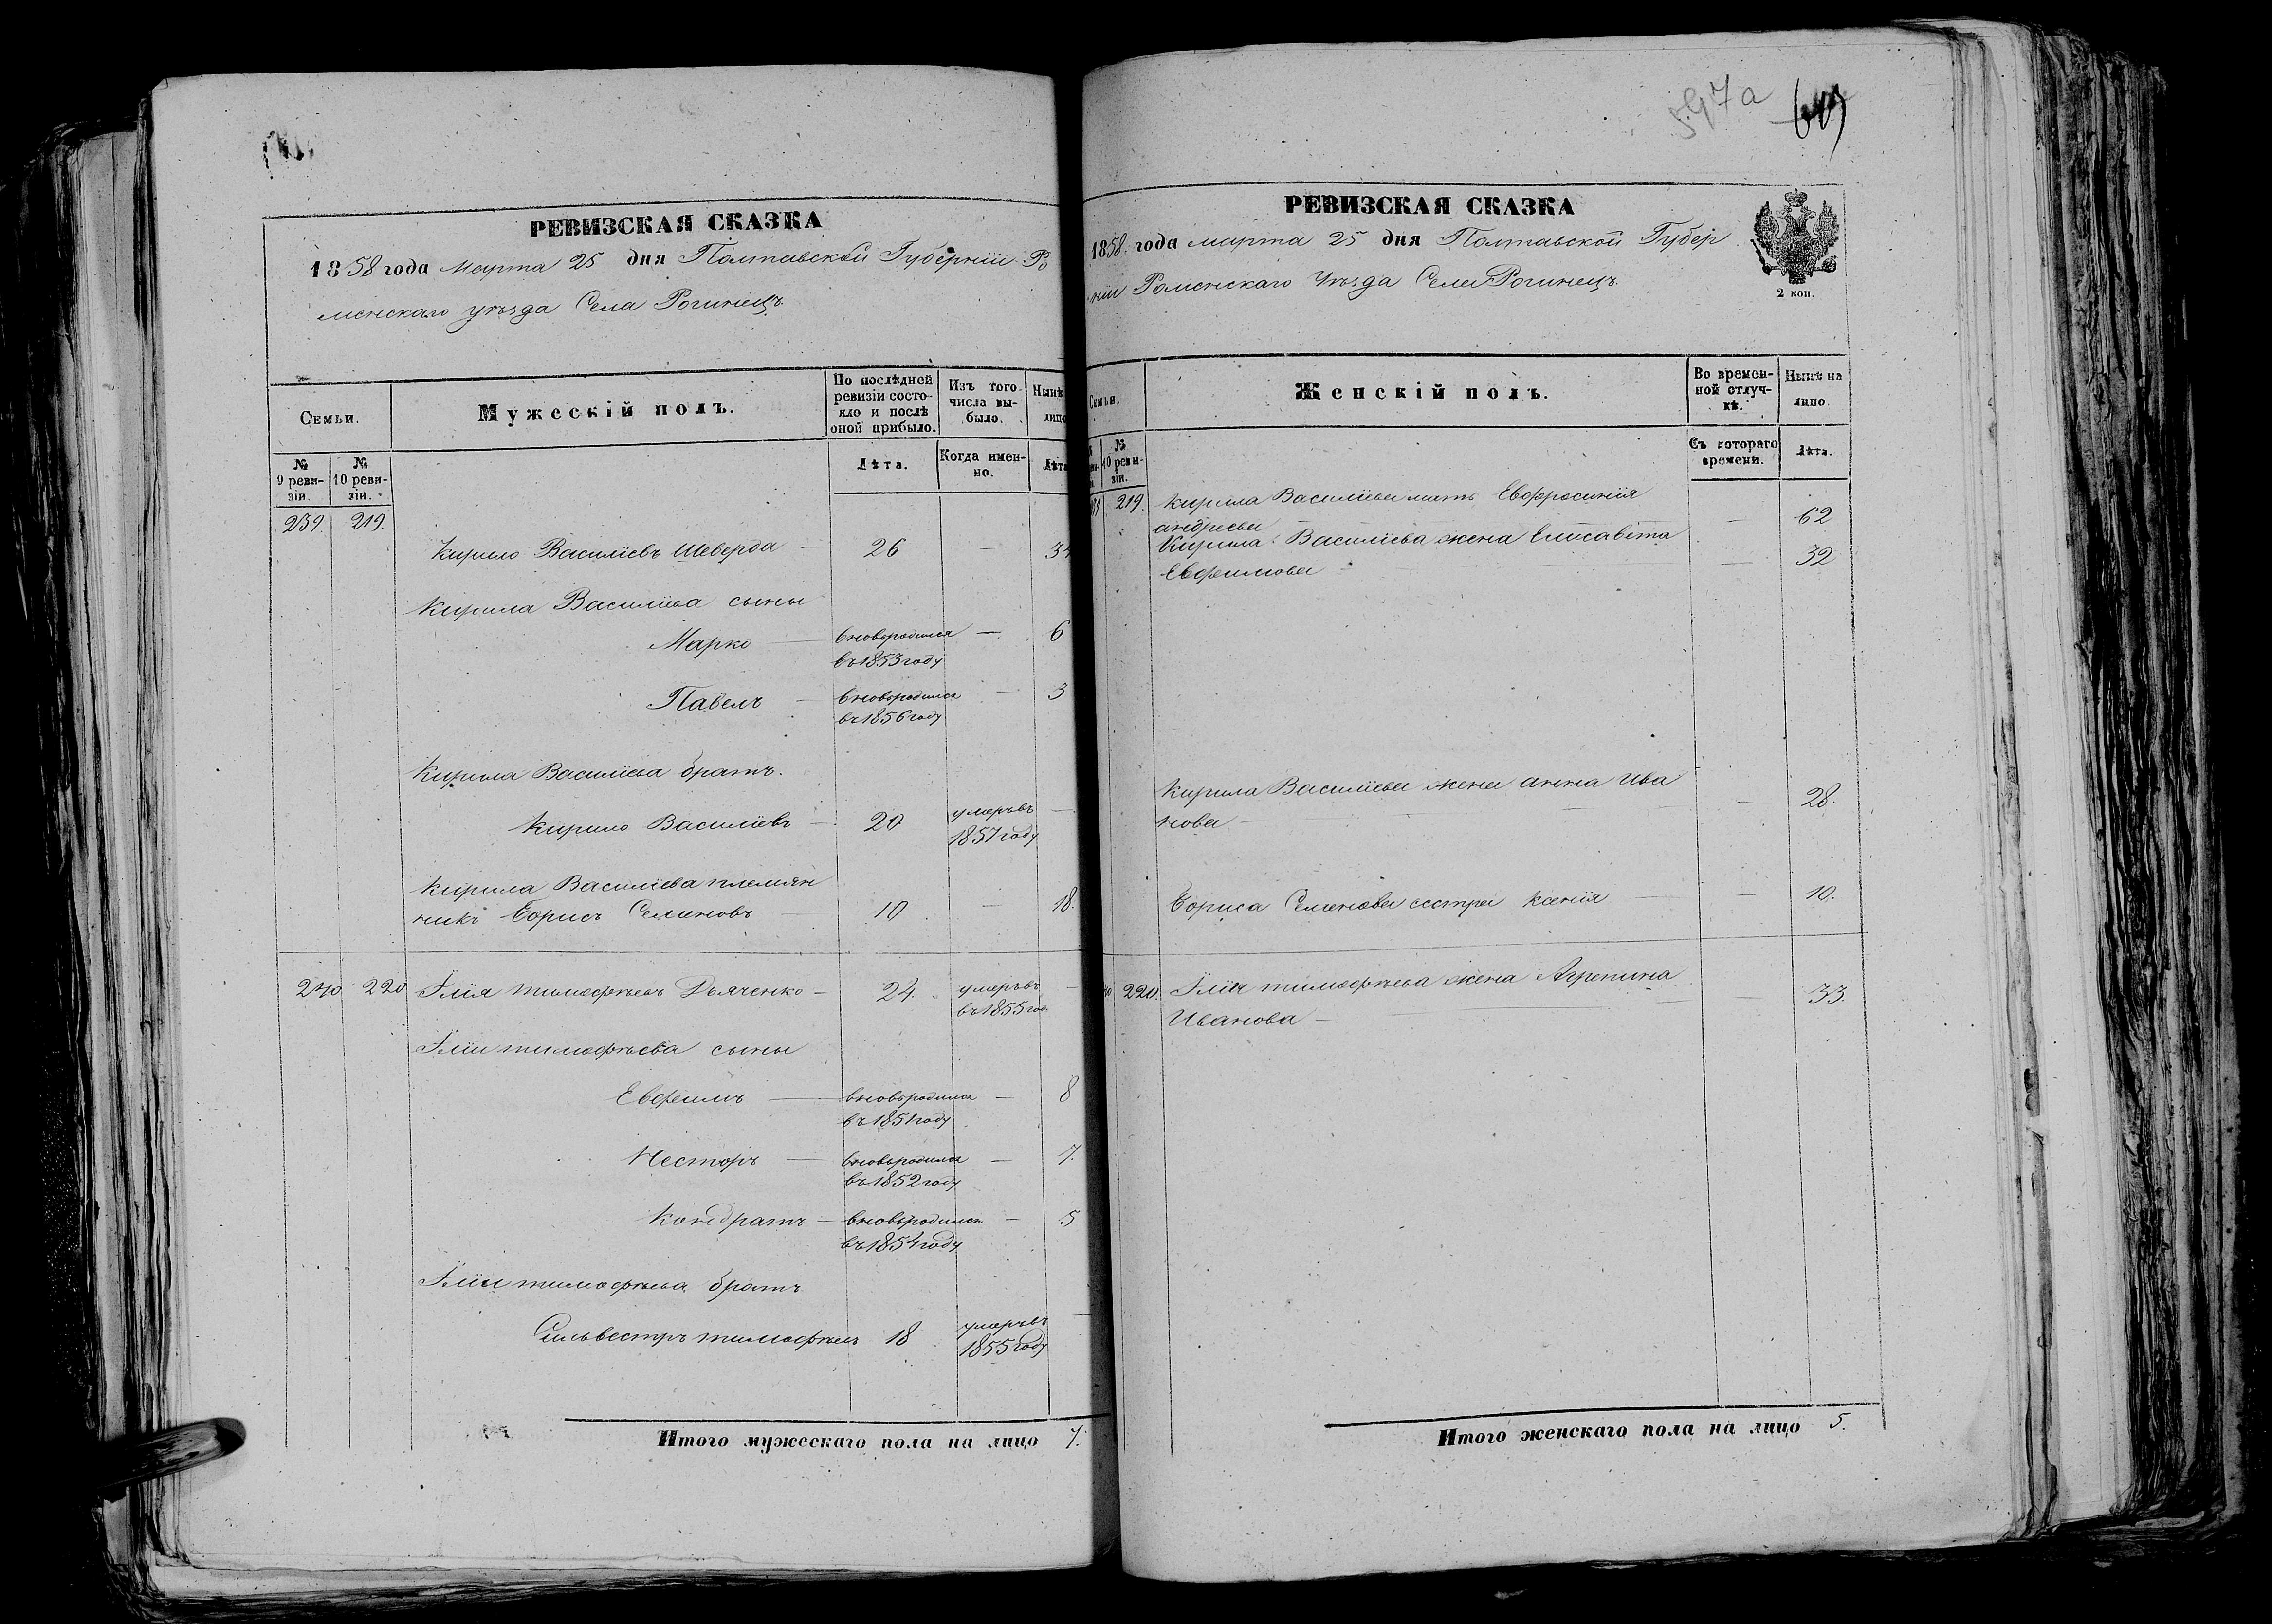 РЕВИЗСКАЯ СКАЗКА
1858 года Марта 25 дня Полтавской Губерніи Ро
менскаго уѣзда Села Рогинецъ
Семьи.
Мужескій полъ.
По послѣдней ревизіи состояло и послѣ оной прибыло.
Изъ того числа выбыло.
Нынѣ лицо
№ 9 ревизіи.
№ 10 ревизіи.
Лѣта.
Когда именно.
Лѣта
239. 219.
Кирило Василіевъ Шеверда — 26 — 34
Кирила Василіева сыны
Марко — вновьродился — 6
въ 1853 году
Павелъ — вновьродился — 3
въ 1856 году
Кирила Василіева братъ.
Кирило Василіевъ — 20 умеръвъ —
1857 году
Кирила Василіева племян
никъ Борисъ Семеновъ 10 — 18.
240 220 Илія Тимофѣевъ Дьяченко — 24. умеръвъ —
въ 1855 го
Иліи Тимофѣева сыны
Евфимъ — вновьродился — 8
въ 1851 году
Несторъ — вновьродился — 7.
въ 1852 году
Кондратъ — вновьродился — 5
въ 1854 году
Иліи Тимофѣева братъ
Сильвестръ Тимофѣевъ 18 умеръвъ —
1855 году
Итого мужескаго пола на лицо 7.
597а
РЕВИЗСКАЯ СКАЗКА
1858. года марта 25 дня Полтавской Губер
ніи Роменскаго Уѣзда Села Рогинецъ
2 коп.
Семьи.
Женскій полъ.
Во временной отлучкѣ.
Нынѣ на лицо.
№ 10 ревизіи.
Съ котораго времени.
Лѣта.
219. Кирила Василіева мать Евфросинія
андреева — 62
Кирила Василіева жена Елисавета
Евфимова — — 32
Кирила Василіева жена анна Ива
нова — — 28.
Бориса Семенова сестра Ксенія — — 10.
220. Иліи Тимофѣева жена Агрепина
Иванова — — 33.
Итого женскаго пола на лицо 5.